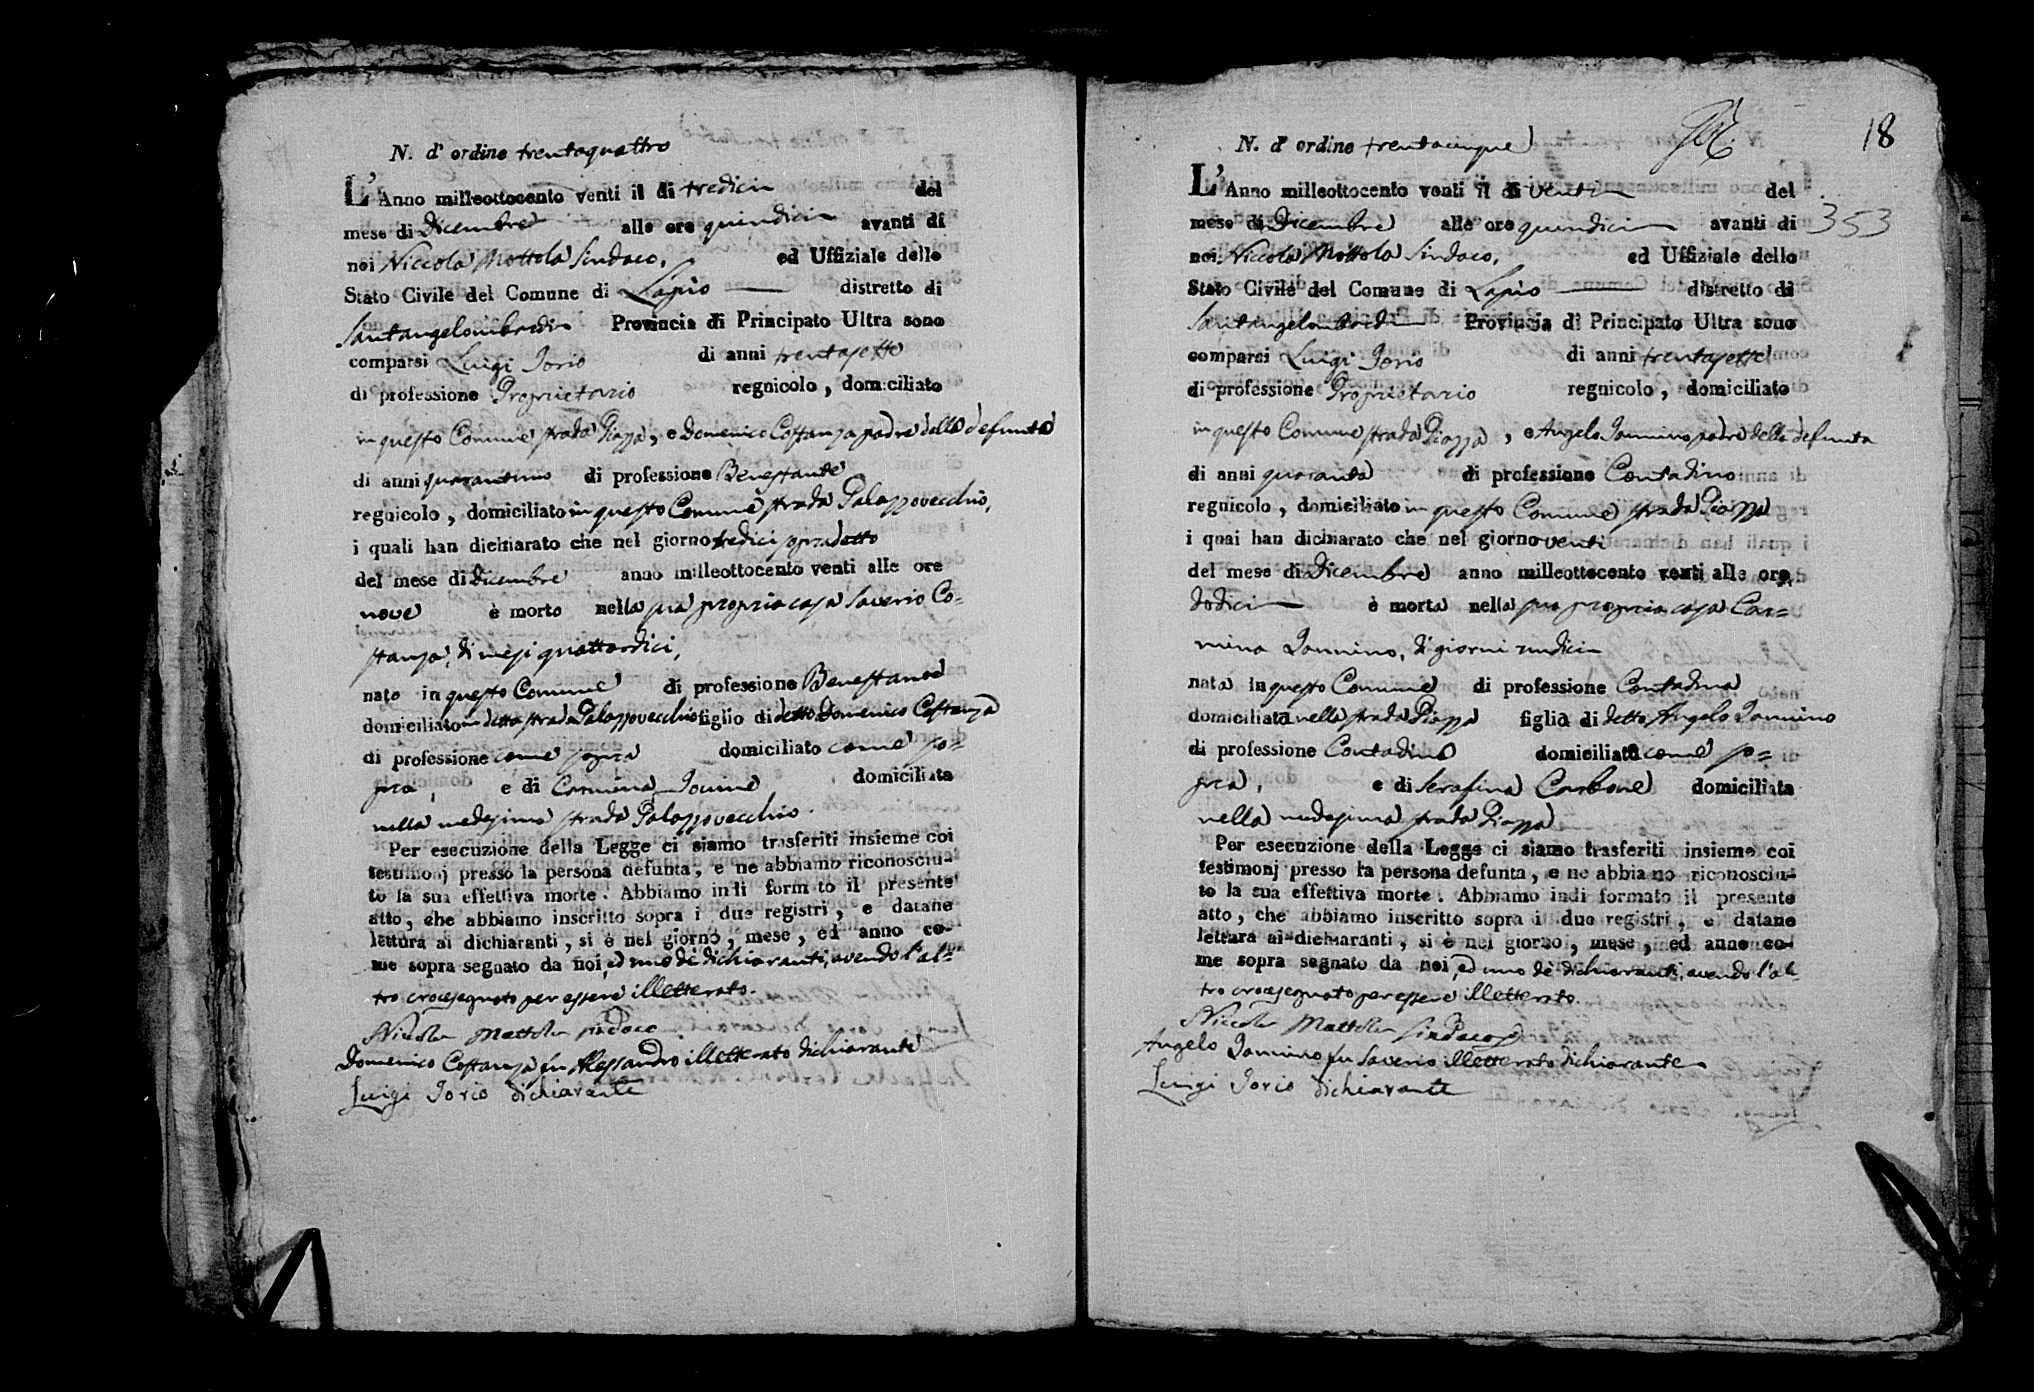 N. d' ordine trentaquattro
L'Anno milleottocento venti il di tredici del
mese di Dicembre alle ore quindici avanti di
noi Niccola Mottola Sindaco, ed Uffiziale dello
Stato Civile del Comune di Lapio distretto di
Santangelombardi Provincia di Principato Ultra sono
comparsi Luigi Iorio di anni trentasette
di professione Proprietario regnicolo, domiciliato
in questo Comune strada Piazza, e Domenico Costanza padre della defunta
di anni quarantuno di professione Benestante
regnicolo, domiciliato in questo Comune strada Palazzovecchio,
i quali han dichiarato che nel giorno tredici sopradetto
del mese di Dicembre anno milleottocento venti alle ore
nove è morto nella sua propria casa Saverio Co=
stanza, di mesi quattordici,
nato in questo Comune di professione Benestante
domiciliato in detta strada Palazzovecchio figlio di detto Domenico Costanza
di professione come sopra domiciliato come so=
pra, e di Carmina domiciliata
nella medesima strada Palazzovecchio.
Per esecuzione della Legge ci siamo trasferiti insieme coi
testimonj presso la persona defunta, e ne abbiamo riconosciu-
to la sua effettiva morte. Abbiamo indi formato il presente
atto, che abbiamo inscritto sopra i due registri, e datane
lettura ai dichiaranti, si è nel giorno, mese, ed anno co-
me sopra segnato da noi, ed uno de dichiaranti, avendo l'al=
tro crocesegnato per essere illetterato.
Niccola Mottola Sindaco
Domenico Costanza fu Alessandro illetterato dichiarante
Luigi Iorio dichiarante
18
N. d' ordine trentacinque
L'Anno milleottocento venti il di venti del
mese di Dicembre alle ore quindici avanti di
353
noi Niccola Mottola Sindaco, ed Uffiziale dello
Stato Civile del Comune di Lapio distretto di
Santangelombardi Provincia di Principato Ultra sono
comparsi Luigi Iorio di anni trentasette
di professione Proprietario regnicolo, domiciliato
in questo Comune strada Piazza, e Angelo Iannino padre della defunta
di anni quaranta di professione Contadino
regnicolo, domiciliato in questo Comune strada Piazza
i quai han dichiarato che nel giorno venti
del mese di Dicembre anno milleottocento venti alle ore
dodici è morta nella sua propria casa Car=
mina Iannino, di giorni undici
nata in questo Comune di professione Contadina
domiciliata nella strada Piazza figlia di detto Angelo Iannino
di professione Contadino domiciliata come so=
pra, e di Serafina Carbone domiciliata
nella medesima strada Piazza
Per esecuzione della Legge ci siamo trasferiti insieme coi
testimonj presso la persona defunta, e ne abbiamo riconosciu-
to la sua effettiva morte. Abbiamo indi formato il presente
atto, che abbiamo inscritto sopra i due registri, e datane
lettura ai dichiaranti, si è nel giorno, mese, ed anno co-
me sopra segnato da noi, ed uno de dichiaranti, avendo l'al
tro crocesegnato per essere illetterato.
Niccola Mottola Sindaco
Angelo Iannino fu Saverio illetterato dichiarante
Luigi Iorio dichiarante